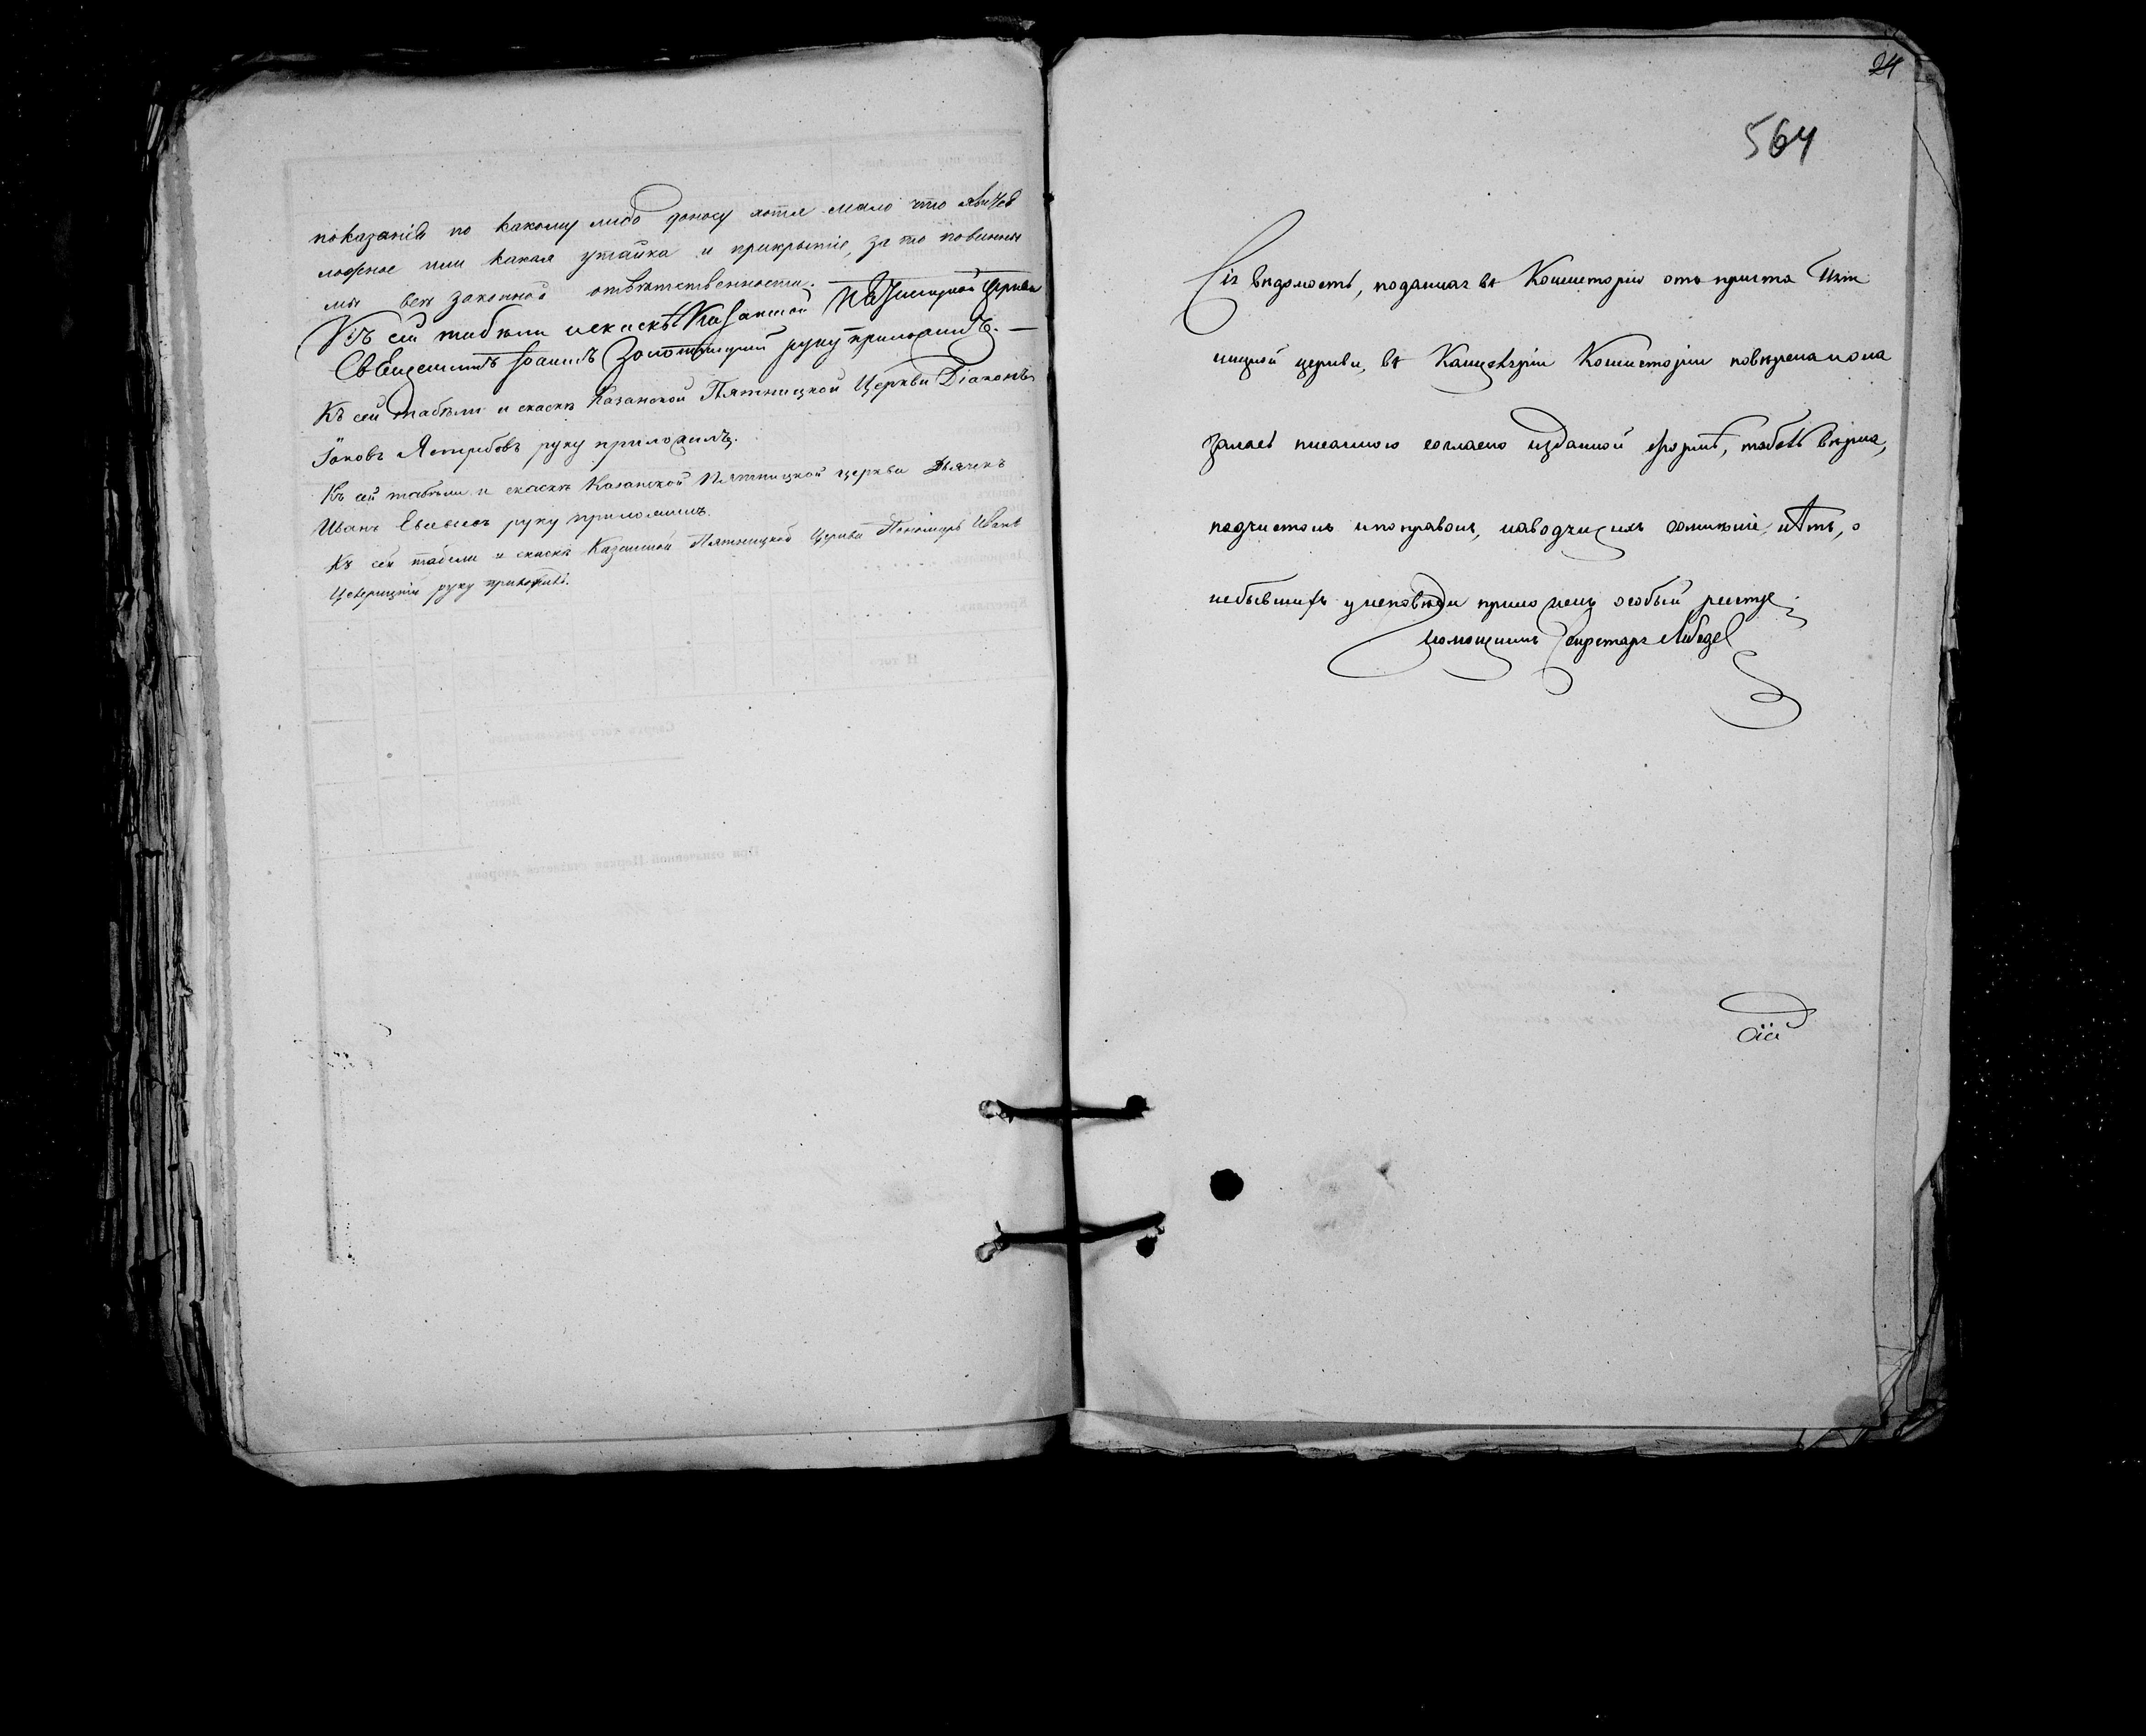 показанiя по какому либо доносу хотя мало что явится
ложное или какая утайка и прикрытiе, за то повинны
мы всей законной отвѣтственности.
Къ сей табели и скаскѣ Казанской Пятницкой Церкви
Священникъ Iоаннъ Золотницкiй руку приложилъ.
Къ сей табели и скаскѣ Казанской Пятницкой Церкви Дiаконъ
Iаковъ Ястребовъ руку приложилъ.
Къ сей табели и скаскѣ Казанской Пятницкой церкви Дьячекъ
Иванъ руку приложилъ.
Къ сей табели и скаскѣ Казанской Пятницкой Церкви Пономарь Иванъ
руку приложилъ.
24
564
Сiя вѣдомость, поданная въ Консисторiю отъ причта Пят
ницкой церкви, въ Канцелярiи Консисторiи повѣрена и она
залась писанною согласно изданной формѣ, табель вѣрна,
подчистокъ и поправокъ, наводящихъ сомнѣнiе, нѣтъ, о
небывшихъ у исповѣди приложенъ особый реестръ
Помощникъ Секретаря Лебедев